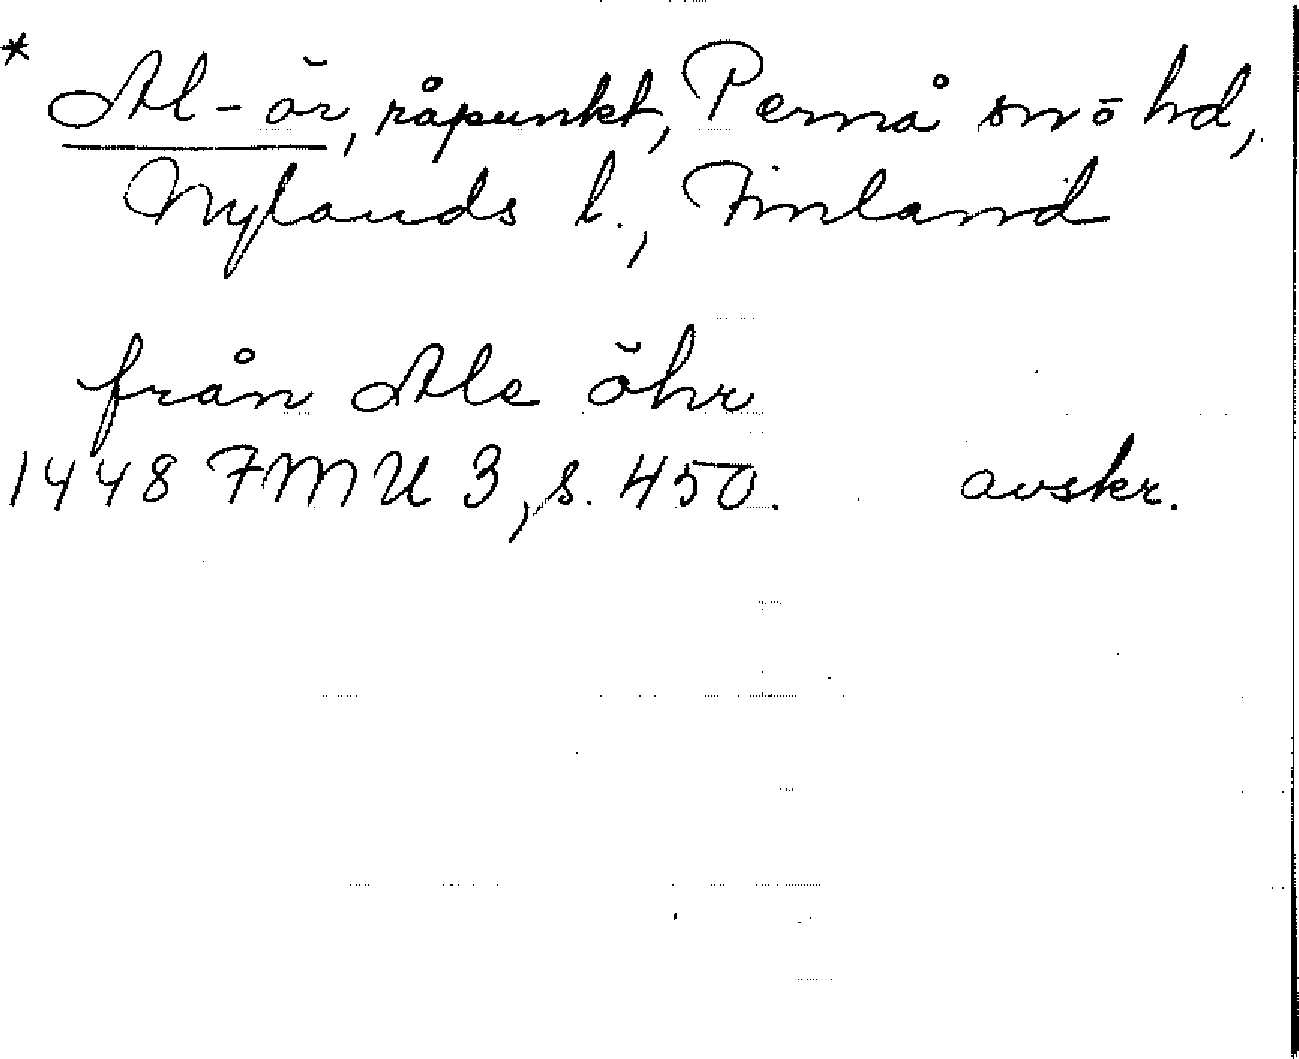 * Al-ör, råpunkt, Pernå sn o hd,
Nylands l., Finland
från Ale öhr
1448 FMU 3, s. 450. avskr.